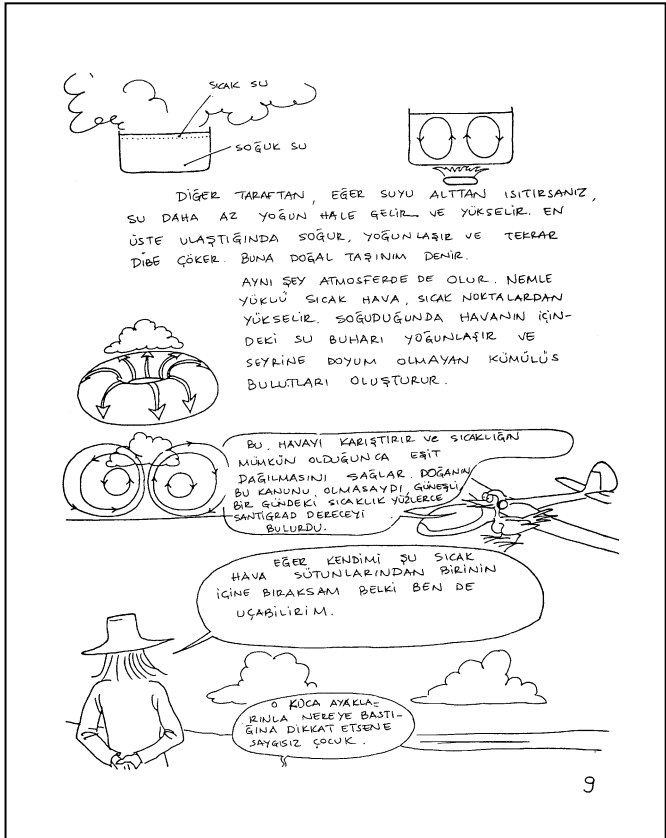 SICAK SU
SOĞUK SU
DİĞER TARAFTAN, EĞER SUYU ALTTAN ISITIRSANIZ,
SU DAHA AZ YOĞUN HALE GELİR VE YÜKSELİR. EN
ÜSTE ULAŞTIĞINDA SOĞUR, YOĞUNLAŞIR VE TEKRAR
DİBE ÇÖKER. BUNA DOĞAL TAŞINIM DENİR.
AYNI ŞEY ATMOSFERDE DE OLUR. NEMLE
YÜKLÜ SICAK HAVA, SICAK NOKTALARDAN
YÜKSELİR. SOĞUDUĞUNDA HAVANIN İÇİN-
DEKİ SU BUHARI YOĞUNLAŞIR VE
SEYRİNE DOYUM OLMAYAN KÜMÜLÜS
BULUTLARI OLUŞTURUR.
BU, HAVAYI KARIŞTIRIR VE SICAKLIĞIN
MÜMKÜN OLDUĞUNCA EŞİT
DAĞILMASINI SAĞLAR. DOĞANIN
BU KANUNU OLMASAYDI, GÜNEŞLİ
BİR GÜNDEKİ SICAKLIK YÜZLERCE
SANTİGRAD DERECEYİ
BULURDU.
EĞER KENDİMİ ŞU SICAK
HAVA SÜTUNLARINDAN BİRİNİN
İÇİNE BIRAKSAM BELKİ BEN DE
UÇABİLİRİM.
O KOCA AYAKLA-
RINLA NEREYE BASTI-
ĞINA DİKKAT ETSENE
SAYGISIZ ÇOCUK.
9